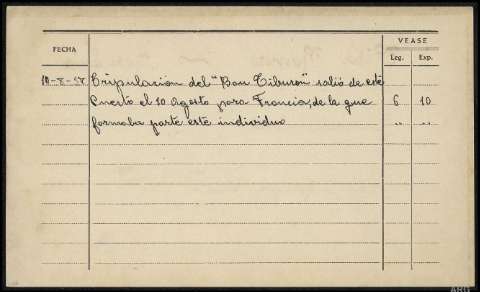 VEASE
FECHA
Leg. Exp.
Tripulación del "Bou Tiburón" salió de este
Puerto el 10 Agosto para Francia, de la que 6 10
formaba parte este individuo " "